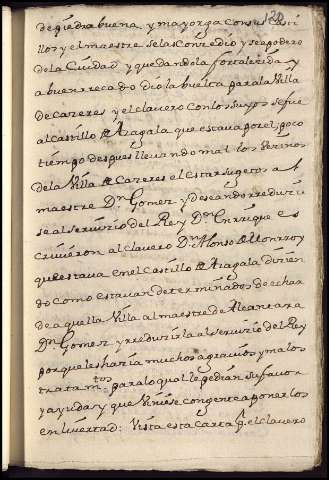 de piedra buena, y mayorga con sus Casti
llos y el maestre se las Conzedio y se apodero
de la Ciudad y quedandola fortalezida y
a buen recado dio la buelta para la Villa
de Cazeres y el clavero con los suyos se fue
al castillo de Azagala que estava por el, poco
tiempo despues llevando mal los vezinos
de la Villa de Cazeres el estar sugetos al
maestre Dn Gomez y deseando rreduzir
se al servizio del Rey Dn Enrrique es
crivieron al clavero Dn Alonso de Monrroy
que estava en el Castillo de Azagala dizien
do como estavan determinados de echar
de aquella Villa al maestre de Alcantara
Dn Gomez y rreduzirla al servizio del Rey
porque les hazia muchos agravios y malos
tratamtos para lo qual le pedian su favor
y ayuda y que viniese con gente a ponerlos
en livertad: Vista esta Carta pr el clavero